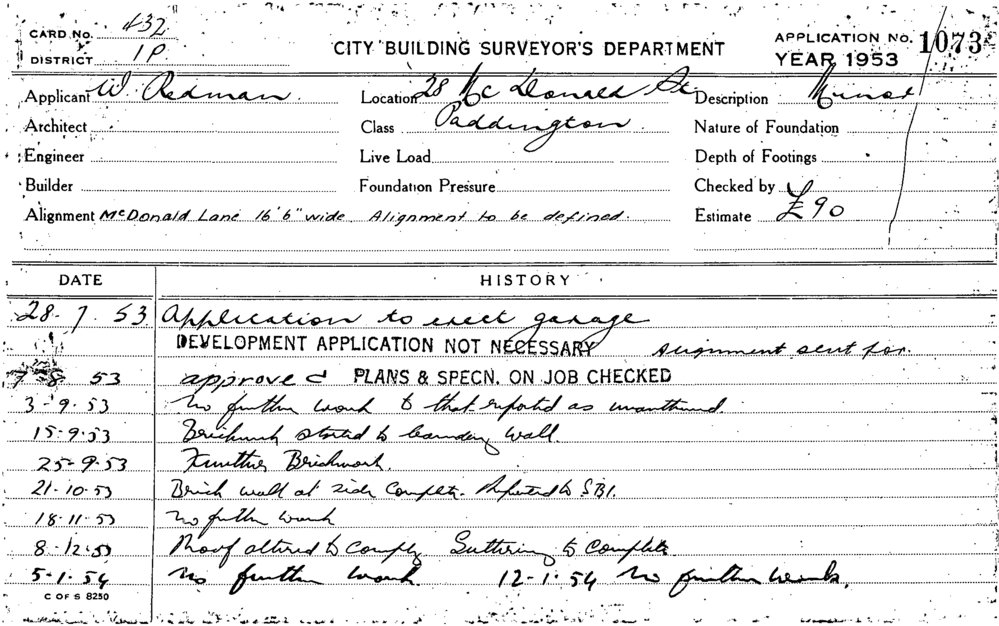 CARD No. 432
DISTRICT 1P.
CITY BUILDING SURVEYOR'S DEPARTMENT
APPLICATION No. 1073
YEAR 1953
Applicant W. Redman Location 28 McDonald St Description Minor
Architect Class Paddington Nature of Foundation
Engineer Live Load Depth of Footings
Builder Foundation Pressure Checked by
Alignment McDonald Lane 16'6" wide. Alignment to be defined. Estimate £90
DATE HISTORY
28. 7. 53 Application to erect garage
DEVELOPMENT APPLICATION NOT NECESSARY Alignment sent for.
7-8. 53 approved PLANS & SPECN. ON JOB CHECKED
3-9.53 No further work to that reported as
15-9.53 Brickwork started to boundary wall.
25-9.53 Further Brickwork.
21-10.53 Brick wall at side complete. Reported to SBI.
18-11-53 No further work
8-12-53 Roof altered to comply Guttering to complete.
5-1.54 No further work. 12-1.54 No further work.
C OF S 8250